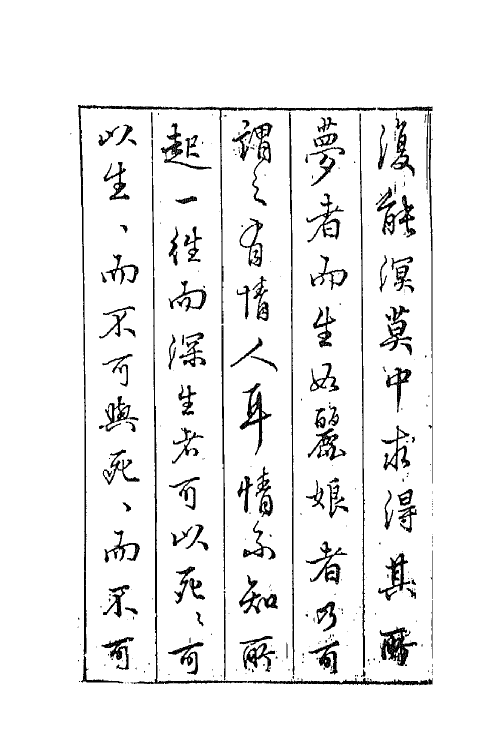 復能溟莫中求得其所
夢者而生如麗娘者乃可
謂之有情人耳情不知所
起一往而深生者可以死〻可
以生〻而不可與死〻而不可